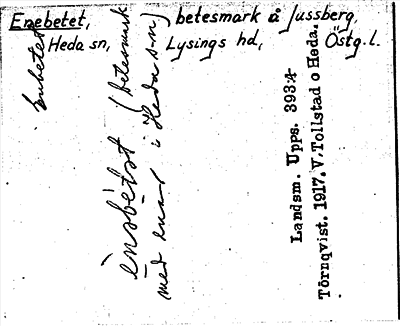 Enebetet, betesmark å Jussberg,
Heda sn, Lysings hd, Östg.l.
enbetet
ènsbétst (betesmark
med enar i Heda s-n)
Landsm. Upps. 393:4
Törnqvist. 1917. V. Tollstad o Heda.